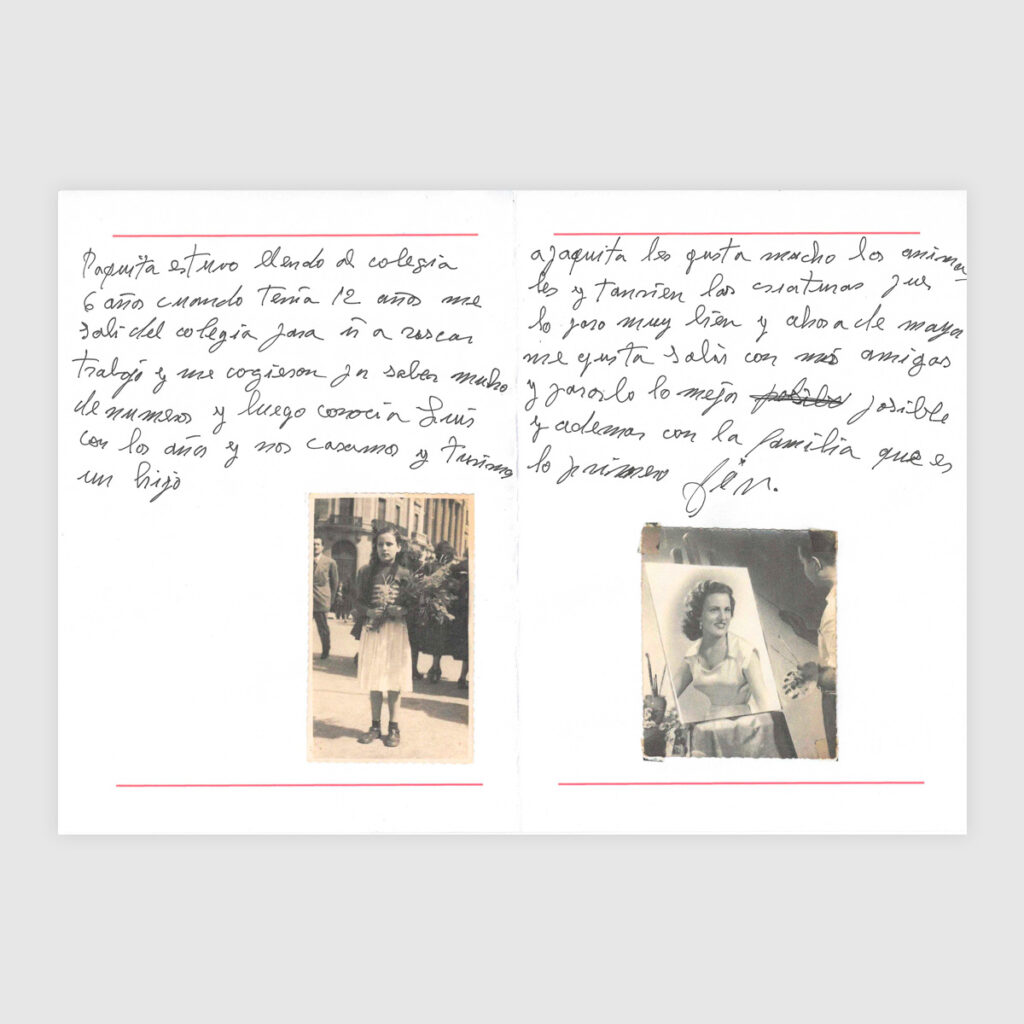 Paquita estuvo llendo al colegia
6 años cuando tenia 12 años me
sali del colegia para ir a roscar
trabajo y me cogieron por saber mucho
de numeros y luego conocia Luis
con los años y nos casamos y tuvimos
un hijo
a paquita les gusta mucho los anima-
les y tanvien las criaturas pues
lo paso muy bien y ahora de mayor
me gusta salir con mis amigas
y pasarlo lo mejor posible
y ademas con la familia que es
lo primero fin.